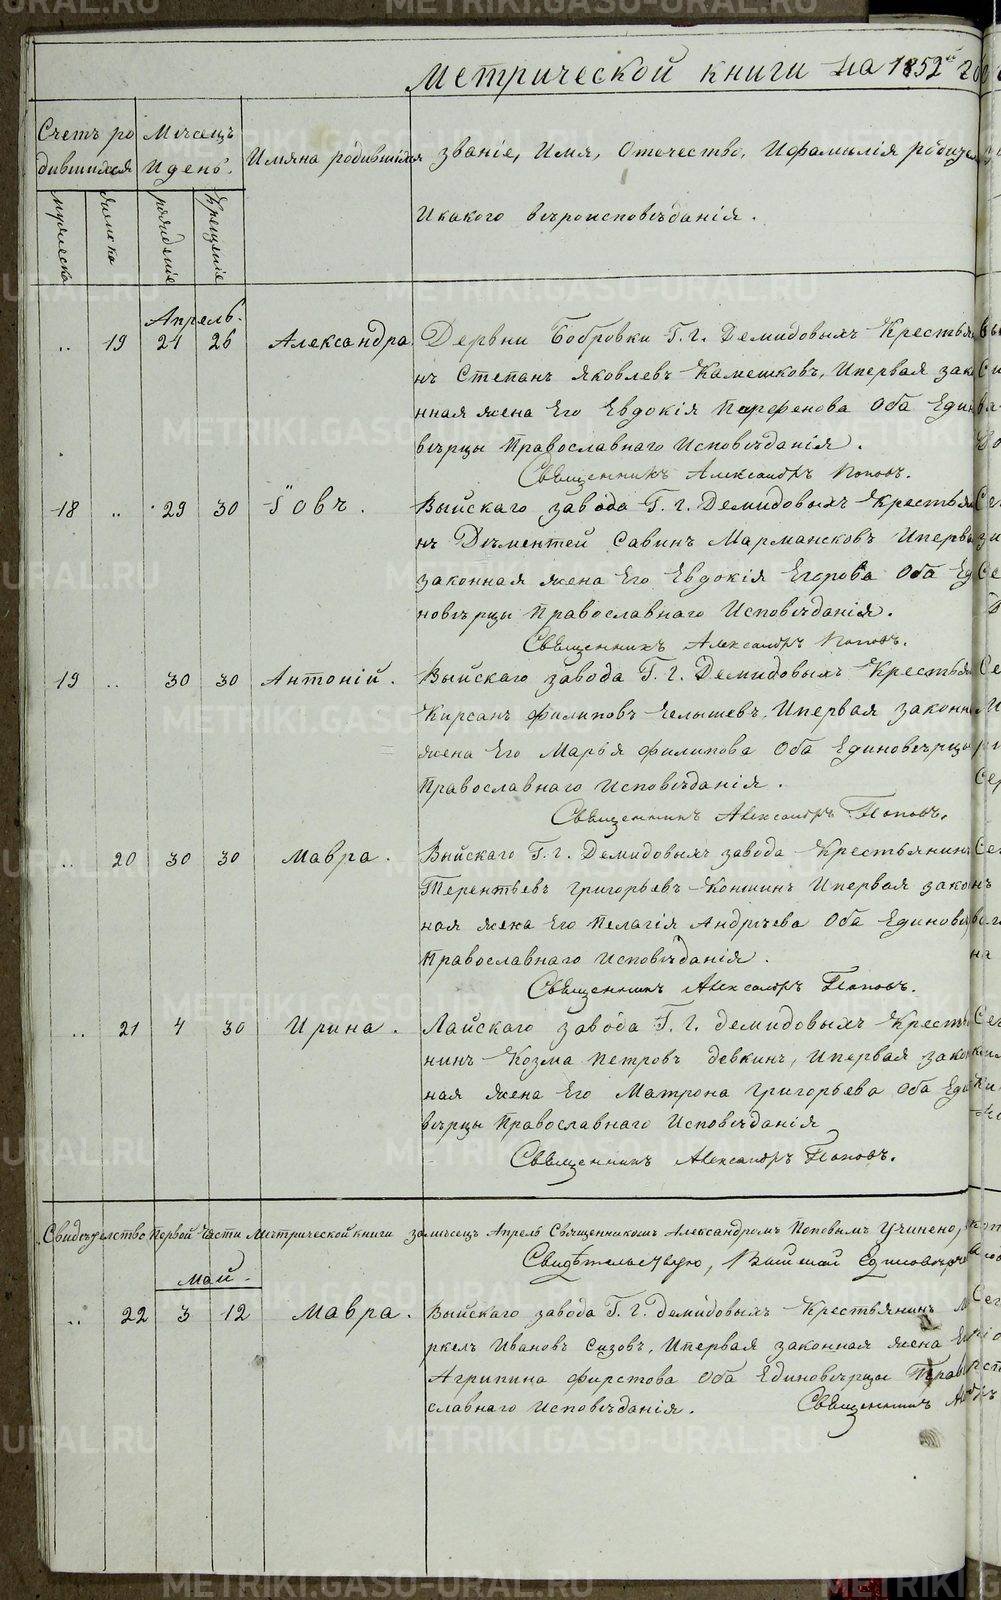 Метрической книги на 1852й
Счетъ ро
дившихся
Месецъ
И день.
Имяна родившихся
званіе, Имя, Отечество, Ифамилія
Икакого вѣроисповѣданія.
мужеска
женска
рожденіе
Крещеніе
Апрель.
.. 19 21 26 Александра
Дервни Бобровки Г. г. Демидовыхъ Крестья
нъ Степанъ Яковлевъ Камешковъ, Ипервая зако
нная жена Его Евдокія Парфенова Оба Един
вѣрцы Православнаго Исповѣданія.
Священникъ Александръ Поповъ.
18 .. 29 30 Іовъ.
Выйскаго завода Г. г. Демидовыхъ Крестья
нъ Дѣментей Савинъ Мармансковъ Иперва
законная жена Его Евдокія Егорова Оба Ед
новѣрцы Православнаго Исповѣданія.
Священникъ Александръ Поповъ.
19 .. 30 30 Антоній.
Выйскаго завода Г. г. Демидовыхъ Крестья
Кирсанъ Филиповъ Челышевъ, Ипервая законн
жена Его Марья Филипова Оба Единовѣрцы
Православнаго Исповѣданія.
Священникъ Александръ Поповъ.
.. 20 30 30 Мавра.
Выйскаго Г. г. Демидовыхъ завода Крестьянинъ
Терентьевъ Григорьевъ Коншинъ Ипервая зако
ная жена Его Пелагія Андрѣева Оба Единовѣ
Православнаго Исповѣданія.
Священникъ Александръ Поповъ.
.. 21 4 30 Ирина.
Лайскаго завода Г. г. Демидовыхъ Крестья
нинъ Козма Петровъ Девкинъ, Ипервая закон
ная жена Его Матрона Григорьева Оба Еди
вѣрцы Православнаго Исповѣданія
Священникъ Александръ Поповъ.
Свидѣтелство Первой Части Мѣтрической книги замѣсецъ Апрель Священникомъ Александромъ Поповымъ Учинено,
Свидѣтельствую,
Май.
.. 22 3 12 Мавра.
Выйскаго завода Г. г. Демидовыхъ Крестьянинъ М
ркелъ Ивановъ Сизовъ, Ипервая законная жена Ег
Агрипина Фирстова Оба Единовѣрцы Прав
славнаго Исповѣданія. Священникъ
METRIKI.GASO-URAL.RU